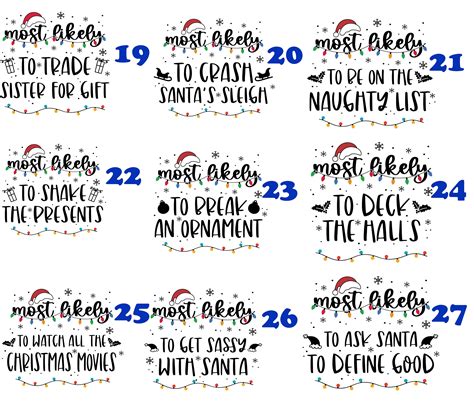 most likely
TO TRADE
SISTER FOR GIFT
19
most likely
TO CRASH
SANTA'S SLEIGH
20
most likely
TO BE ON THE
NAUGHTY LIST
21
most likely
TO SHAKE
THE PRESENTS
22
most likely
TO BREAK
AN ORNAMENT
23
most likely
TO DECK
THE HALLS
24
most likely
TO WATCH ALL THE
CHRISTMAS MOVIES
25
most likely
TO GET SASSY
WITH SANTA
26
most likely
TO ASK SANTA
TO DEFINE GOOD
27